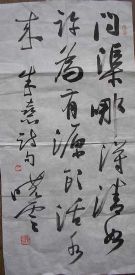 问渠哪得清如
许为有源头活水
来 朱熹诗句 晓云